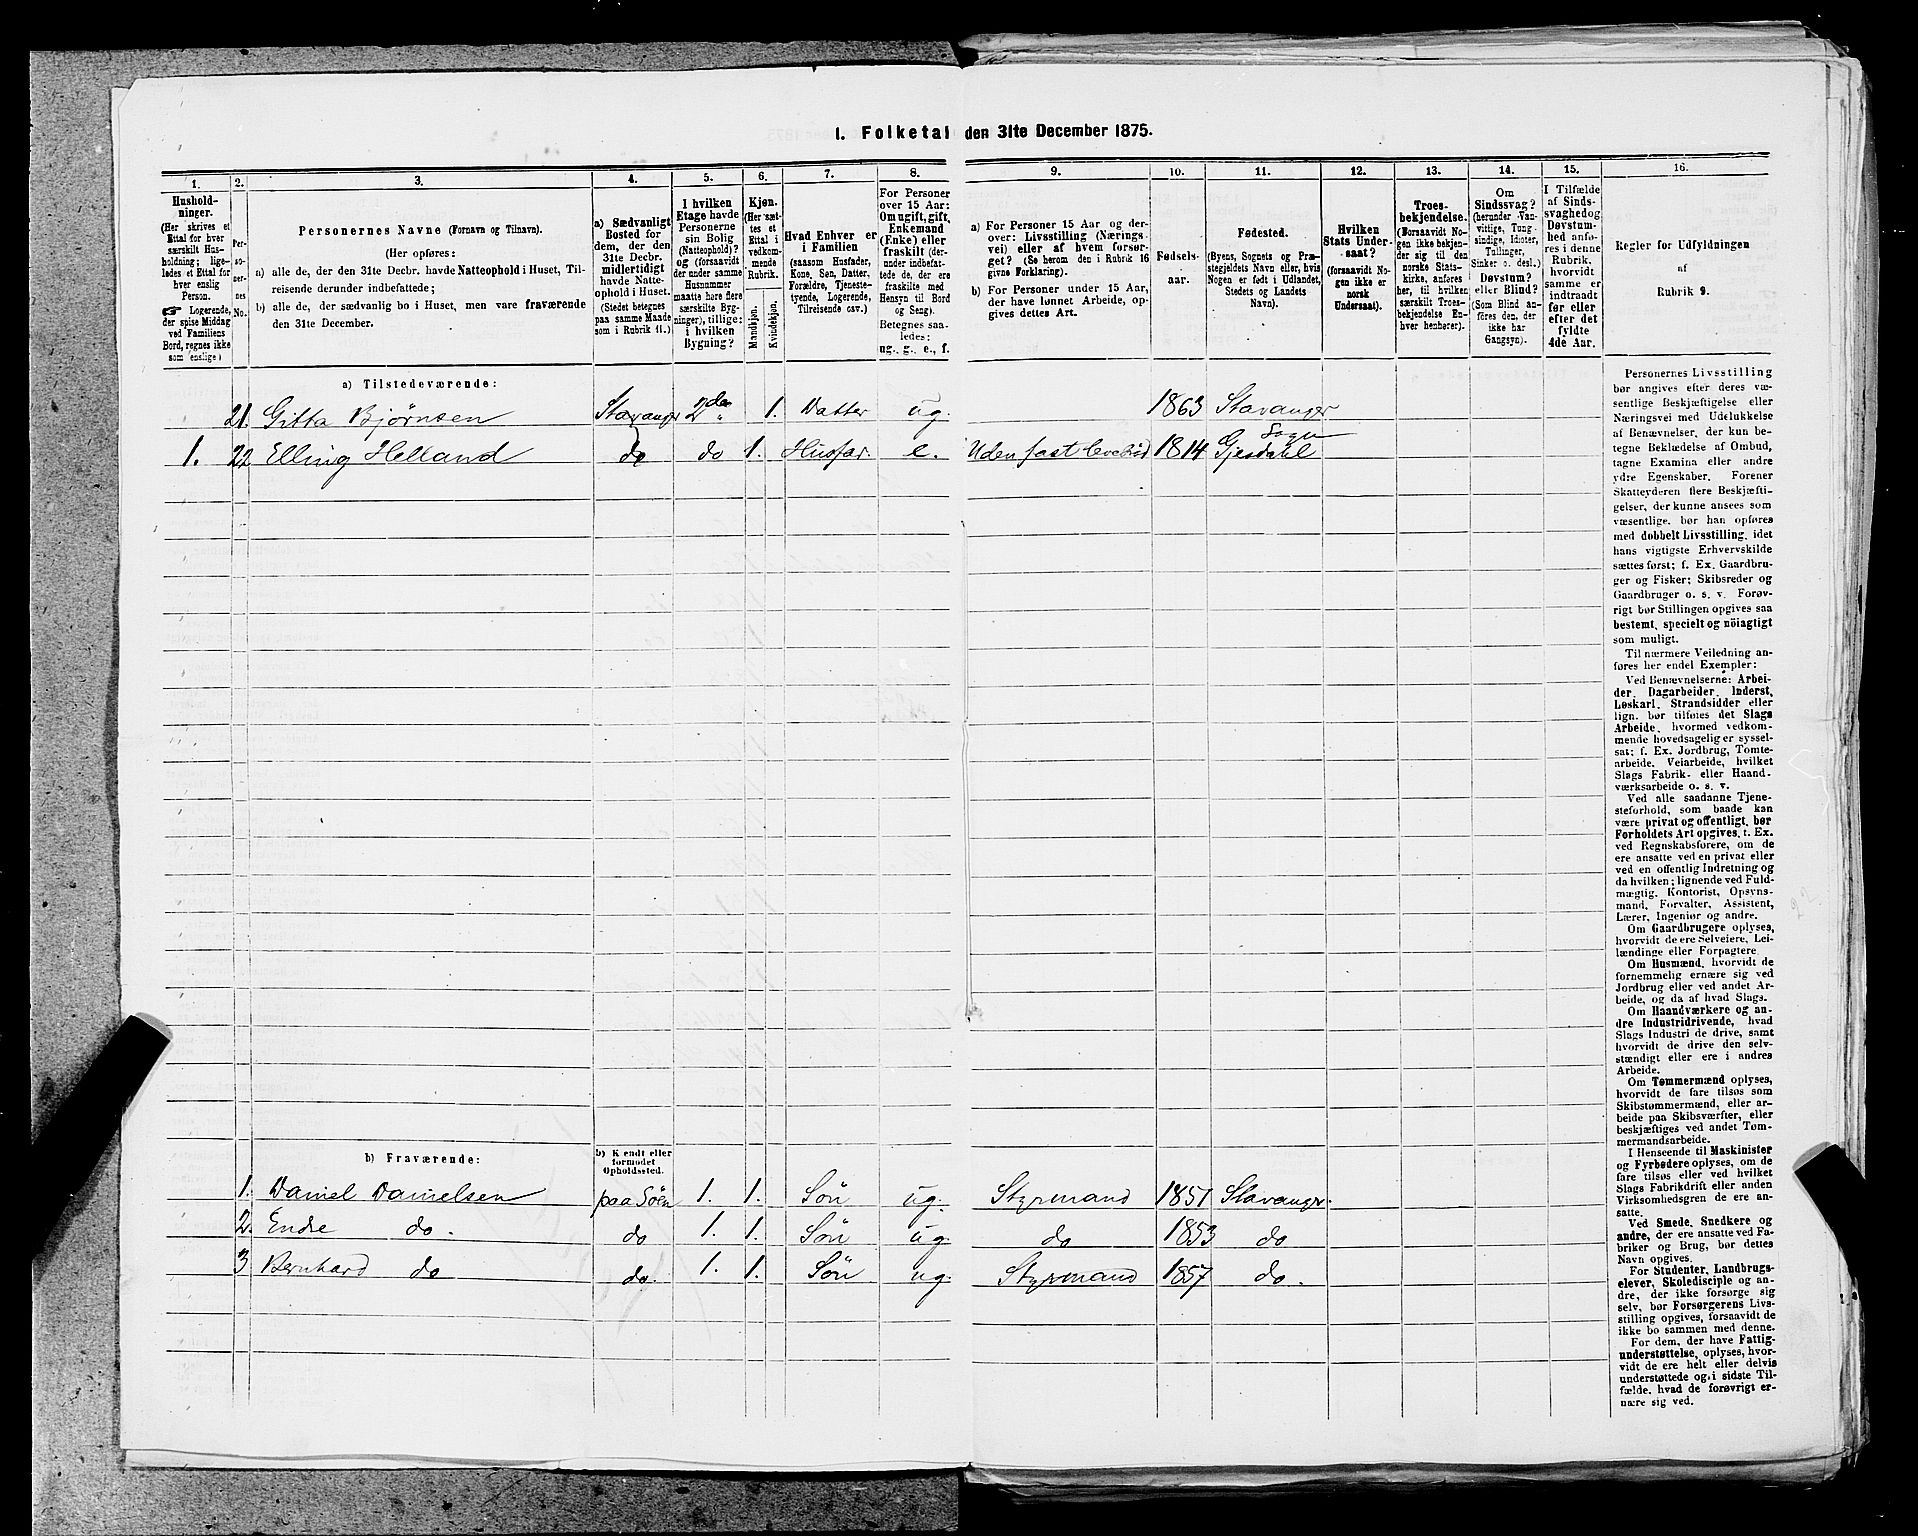 1. Folketal den 31te December 1875.
1. 2. 3. 4. 5. 6. 7. 8. 9. 10. 11. 12. 13. 14. 15. 16.
Hushold-
ninger.
(Her skrives et
Ettal for hver
særskilt Hus-
holdning; lige-
ledes et Ettal for
hver enslig
Person.
☞ Logerende,
der spise Middag
ved Familiens
Bord, regnes ikke
som enslige)
Per-
so-
ner-
nes
No.
Personernes Navne (Fornavn og Tilnavn).
(Her opføres:
a) alle de, der den 31te Decbr. havde Natteophold i Huset, Til-
reisende derunder indbefattede;
b) alle de, der sædvanlig bo i Huset, men vare fraværende
den 31te December.
a) Sædvanligt
Bosted for
dem, der den
31te Decbr.
midlertidigt
havde Natte-
ophold i Huset.
(Stedet betegnes
paa samme Maade
som i Rubrik 11.)
I hvilken
Etage havde
Personerne
sin Bolig
(Natteophold)?
og (forsaavidt
der under samme
Husnummer
maatte høre flere
særskilte Byg-
ninger), tillige:
i hvilken
Bygning?
Kjøn.
(Her sæt-
tes et
Ettal i
vedkom-
mende
Rubrik.
Mandkjøn.
Kvindekjøn.
Hvad Enhver er
i Familien
(saasom Husfader,
Kone, Søn, Datter,
Forældre, Tjeneste-
tyende, Logerende,
Tilreisende osv.)
For Personer
over 15 Aar:
Om ugift, gift,
Enkemand
(Enke) eller
fraskilt (der-
under indbefat-
tede de, der ere
fraskilte med
Hensyn til Bord
og Seng).
Betegnes saa-
ledes:
ug., g., e., f.
a) For Personer 15 Aar og der-
over: Livsstilling (Nærings-
vei) eller af hvem forsør-
get? (Se herom den i Rubrik 16
givne Forklaring).
b) For Personer under 15 Aar,
der have lønnet Arbeide, op-
gives dettes Art.
Fødsels-
aar.
Fødested.
(Byens, Sognets og Præ-
stegjeldets Navn eller, hvis
Nogen er født i Udlandet,
Stedets og Landets
Navn).
Hvilken
Stats Under-
saat?
(forsaavidt No-
gen ikke er
norsk
Undersaat).
Troes-
bekjendelse.
(Forsaavidt No-
gen ikke bekjen-
der sig til den
norske Stats-
kirke, anføres
her, til hvilken
særskilt Troes-
bekjendelse En-
hver henhører).
Om
Sindssvag?
(herunder Van-
vittige, Tung-
sindige, Idioter,
Tullinger,
Sinker o. desl.)
Døvstum?
eller Blind?
(Som Blind an-
føres den, der
ikke har
Gangsyn).
I Tilfælde
af Sinds-
svaghed og
Døvstum-
hed anfø-
res i denne
Rubrik,
hvorvidt
samme er
indtraadt
før eller
efter det
fyldte
4de Aar.
Regler for Udfyldningen
af
Rubrik 9.
a) Tilstedeværende:
21. Gitta Bjørnsen Stavanger 2den " 1. Datter ug. 1863 Stavanger
1. 22 Elling Helland do do 1. Husfar. e. Uden fast levebrød 1814 Gjesdahl Sogn
b) Fraværende:
b) Kendt eller
formodet
Opholdssted.
1. Daniel Danielsen paa Søen 1. 1. Søn ug. Styrmand 1851 Stavanger.
2. Endre do. do 1. 1. Søn ug. do 1853 do
3 Bernhard do do. 1. 1. Søn ug. Styrmand 1857 do.
Personernes Livsstilling
bør angives efter deres væ-
sentlige Beskjæftigelse eller
Næringsvei med Udelukkelse
af Benævnelser, der kun be-
tegne Beklædelse af Ombud,
tagne Examina eller andre
ydre Egenskaber. Forener
Skatteyderen flere Beskjæfti-
gelser, der kunne ansees som
væsentlige, bør han opføres
med dobbelt Livsstilling, idet
hans vigtigste Erhvervskilde
sættes først; f. Ex. Gaardbru-
ger og Fisker; Skibsreder og
Gaardbruger o. s. v. Forøv-
rigt bør Stillingen opgives saa
bestemt, specielt og nøiagtigt
som muligt.
Til nærmere Veiledning an-
føres her endel Exempler:
Ved Benævnelserne: Arbei-
der, Dagarbeider, Inderst,
Løskarl, Strandsidder eller
lign. bør tilføies det Slags
Arbeide, hvormed vedkom-
mende hovedsagelig er syssel-
sat; f. Ex. Jordbrug, Tomte-
arbeide, Veiarbeide, hvilket
Slags Fabrik- eller Haand-
værksarbeide o. s. v.
Ved alle saadanne Tjene-
steforhold, som baade kan
være privat og offentligt, bør
Forholdets Art opgives, t. Ex.
ved Regnskabsførere, om de
ere ansatte ved en privat eller
ved en offentlig Indretning og
da hvilken; lignende ved Fuld-
mægtig, Kontorist, Opsyns-
mand, Forvalter, Assistent,
Lærer, Ingeniør og andre.
Om Gaardbrugere oplyses,
hvorvidt de ere Selveiere, Lei-
lændinge eller Forpagtere.
Om Husmænd, hvorvidt de
fornemmelig ernære sig ved
Jordbrug eller ved andet Ar-
beide, og da af hvad Slags.
Om Haandværkere og an-
dre Industridrivende, hvad
Slags Industri de drive, samt
hvorvidt de drive den selv-
stændigt eller ere i andres
Arbeide.
Om Tømmermænd oplyses,
hvorvidt de fare tilsøs som
Skibstømmermænd, eller ar-
beide paa Skibsværfter, eller
beskjæftiges ved andet Tøm-
mermandsarbeide.
I Henseende til Maskinister
og Fyrbødere oplyses, om de
fare tilsøs eller ved hvilket
Slags Fabrikdrift eller anden
Virksomhedsgren de ere an-
satte.
Ved Smede, Snedkere og
andre, der ere ansatte ved Fa-
briker og Brug, bør dettes
Navn opgives.
For Studenter, Landbrugs-
elever, Skoledisciple og an-
dre, der ikke forsørge sig
selv, bør Forsørgerens Livs-
stilling opgives, forsaavidt de
ikke bo sammen med denne.
For dem, der have Fattig-
understøttelse, oplyses, hvor-
vidt de ere helt eller delvis
understøttede og i sidste Til-
fælde, hvad de forøvrigt er-
nære sig ved.
22.